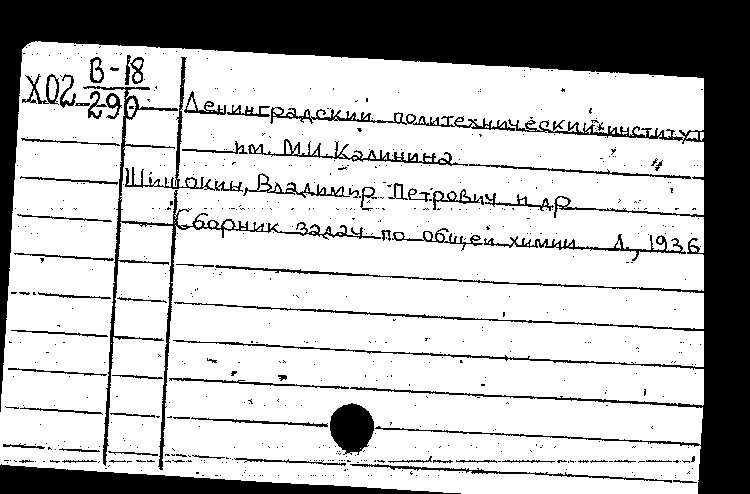 Х02 В-18
290
Ленинградский политехнический институт
им. М.И. Калинина
Шишокин, Владимир Петрович и др
Сборник задач по общей химии Л, 1936